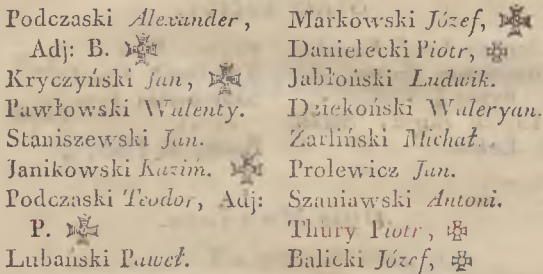 Podczaski Alexander,
Adj: B. ✠
Kryczyński Jan, ✠
Pawłowski Walenty.
Staniszewski Jan.
Janikowski Kazim. ✠
Podczaski Teodor, Adj:
P. ✠
Lubański Paweł.
Markowski Józef, ✠
Danielecki Piotr, ✠
Jabłoński Ludwik.
Dziekoński Waleryan.
Żarliński Michał.
Prolewicz Jan.
Szaniawski Antoni.
Thury Piotr, ✠
Balicki Józef, ✠